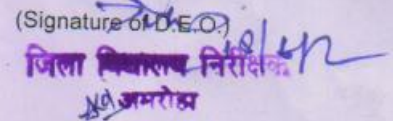 (Signature of D.E.O.)
जिला विद्यालय निरीक्षक
अमरोहा